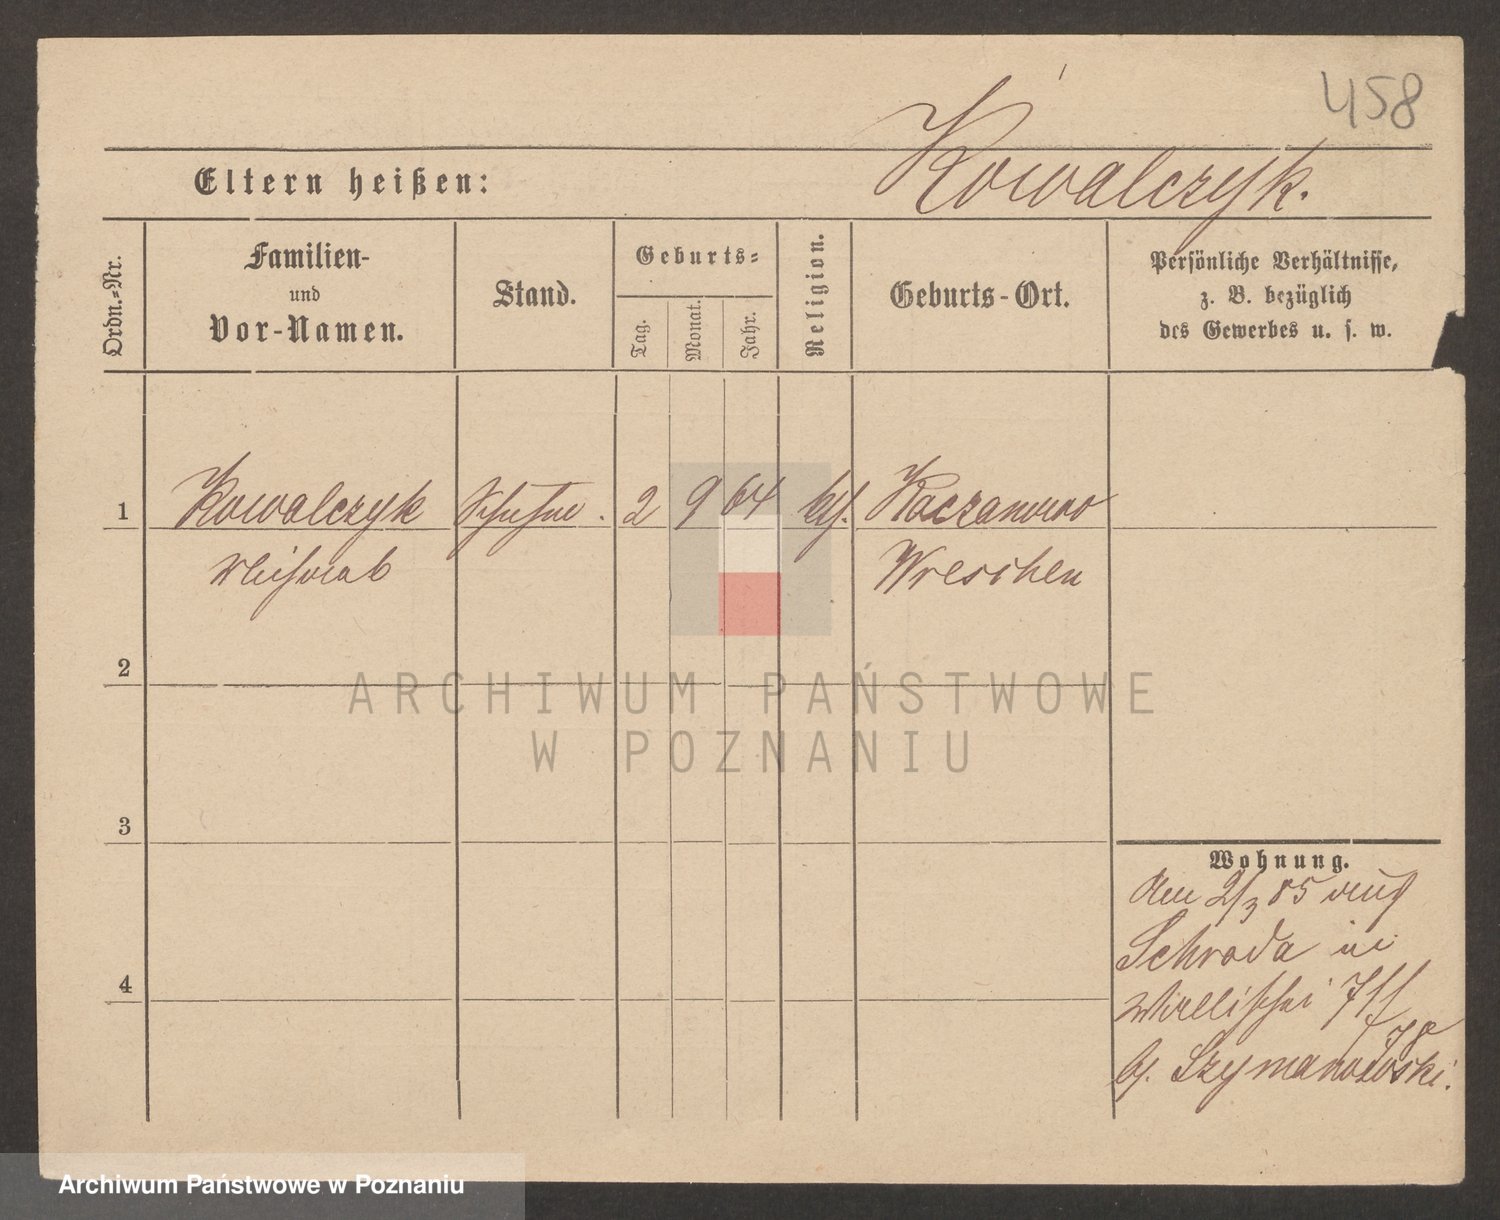 458
Kowalczyk.
Eltern heißen:
Ordn.=Nr.
Familien-
und
Vor-Namen.
Stand.
Geburts=
Tag.
Monat.
Jahr.
Religion.
Geburts-Ort.
Persönliche Verhältnisse,
z. B. bezüglich
des Gewerbes u. s. w.
1 Kowalczyk 2 9 64 Kaczanowo
Wreschen
2
3
4
Wohnung.
Am 2/3 85
Schroda in
Szymanowski.
ARCHIWUM PAŃSTWOWE
W POZNANIU
Archiwum Państwowe w Poznaniu